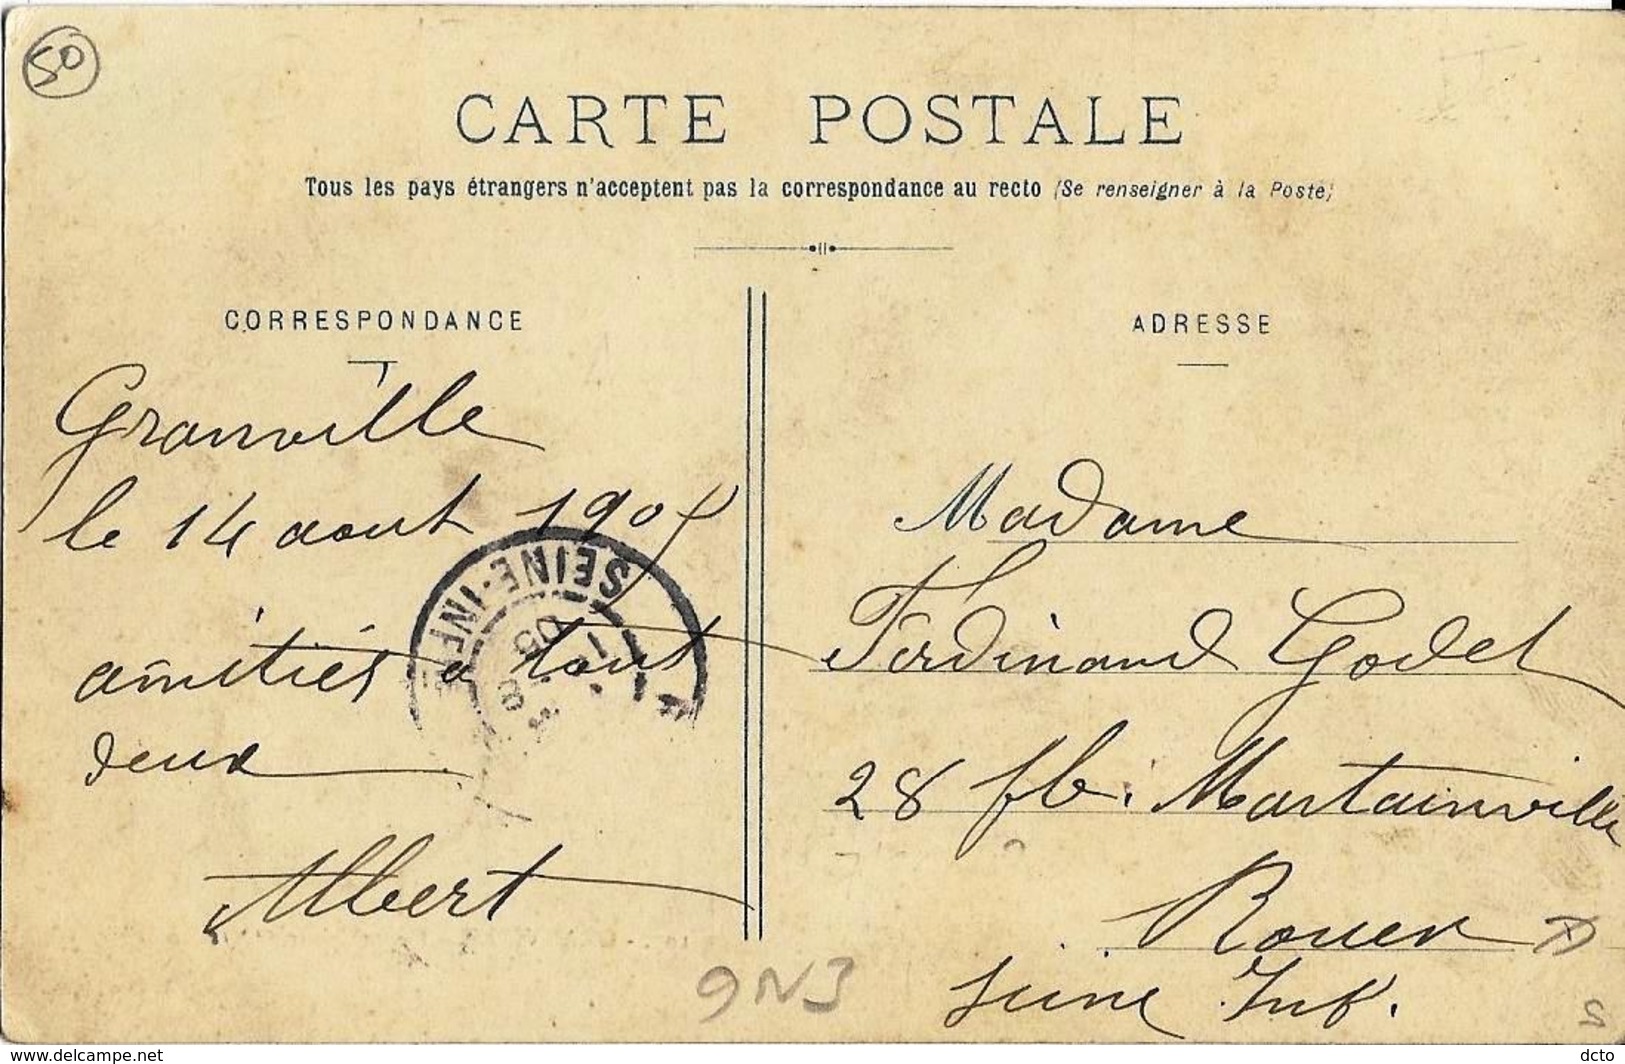 50
CARTE POSTALE
Tous les pays étrangers n'acceptent pas la correspondance au recto (Se renseigner à la Poste)
CORRESPONDANCE
Granville
le 14 aout 1905
amitiés a tout
deux
Albert
SEINE-INFRE
05
ADRESSE
Madame
Ferdinand Godet
28 fb. Martainville
Rouen
Seine Inf.
9N3
www.delcampe.net
dcto